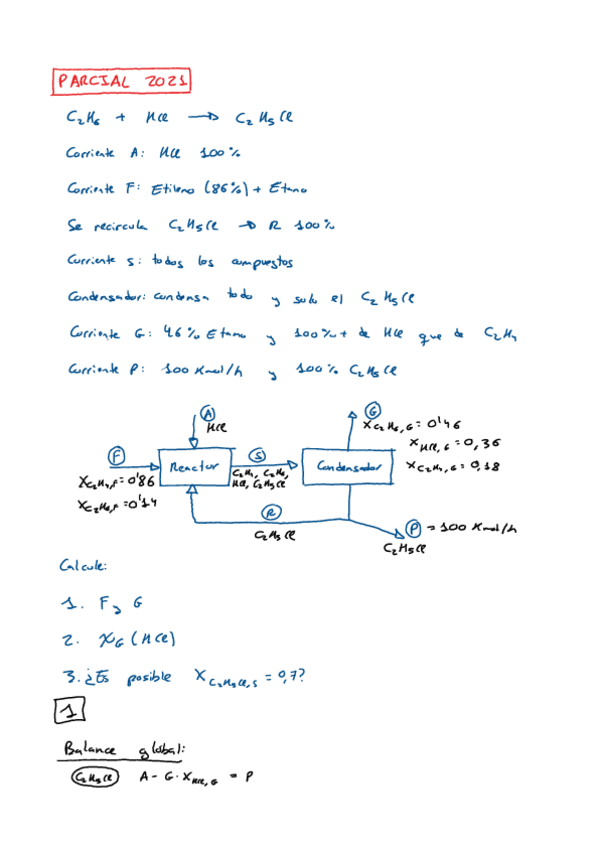 PARCIAL 2021
C2H6 + HCl → C2H5Cl
Corriente A: HCl 100%
Corriente F: Etileno (86%) + Etano
Se recircula C2H5Cl → R 100%
Corriente S: todos los compuestos
Condensador: condensa todo y solo el C2H5Cl
Corriente G: 46% Etano y 100% + de HCl que de C2H4
Corriente P: 100 Kmol/h y 100% C2H5Cl
A
HCl
G
XC2H6,G = 0'46
XHCl,G = 0,36
XC2H4,G = 0,18
F
Reactor
S
Condensador
XC2H4,F = 0'86
C2H4, C2H6,
HCl, C2H5Cl
XC2H6,F = 0'14
R
C2H5Cl
P = 100 Kmol/h
C2H5Cl
Calcule:
1. F y G
2. XG (HCl)
3. ¿Es posible XC2H5Cl,S = 0,7?
1
Balance global:
C2H5Cl A - G · XHCl,G = P